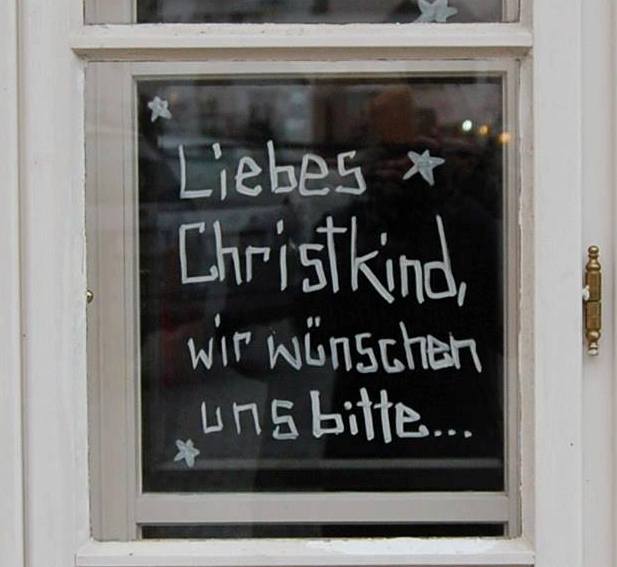 Liebes
Christkind,
wir wünschen
uns bitte...